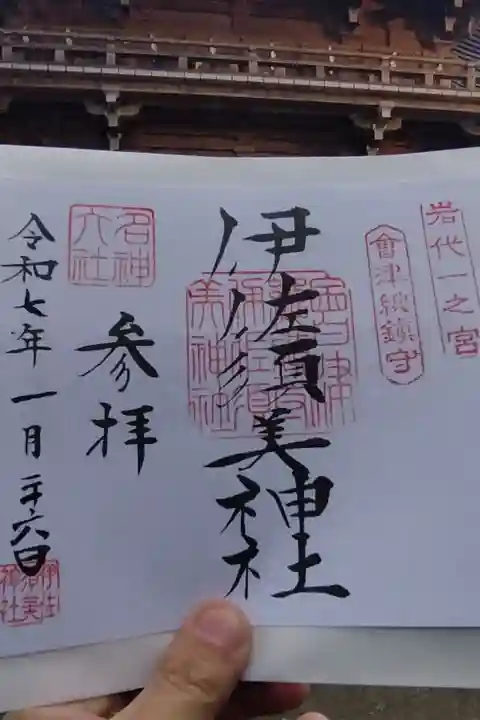 岩代一之宮
會津総鎮守
伊佐須美神社
参拝
名神大社
令和七年一月二十六日
伊佐須美神社